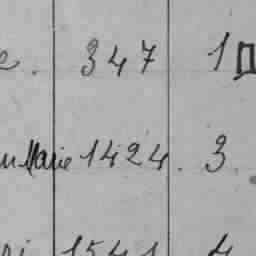 e. 347 1
Marie 1424. 3
1541 4